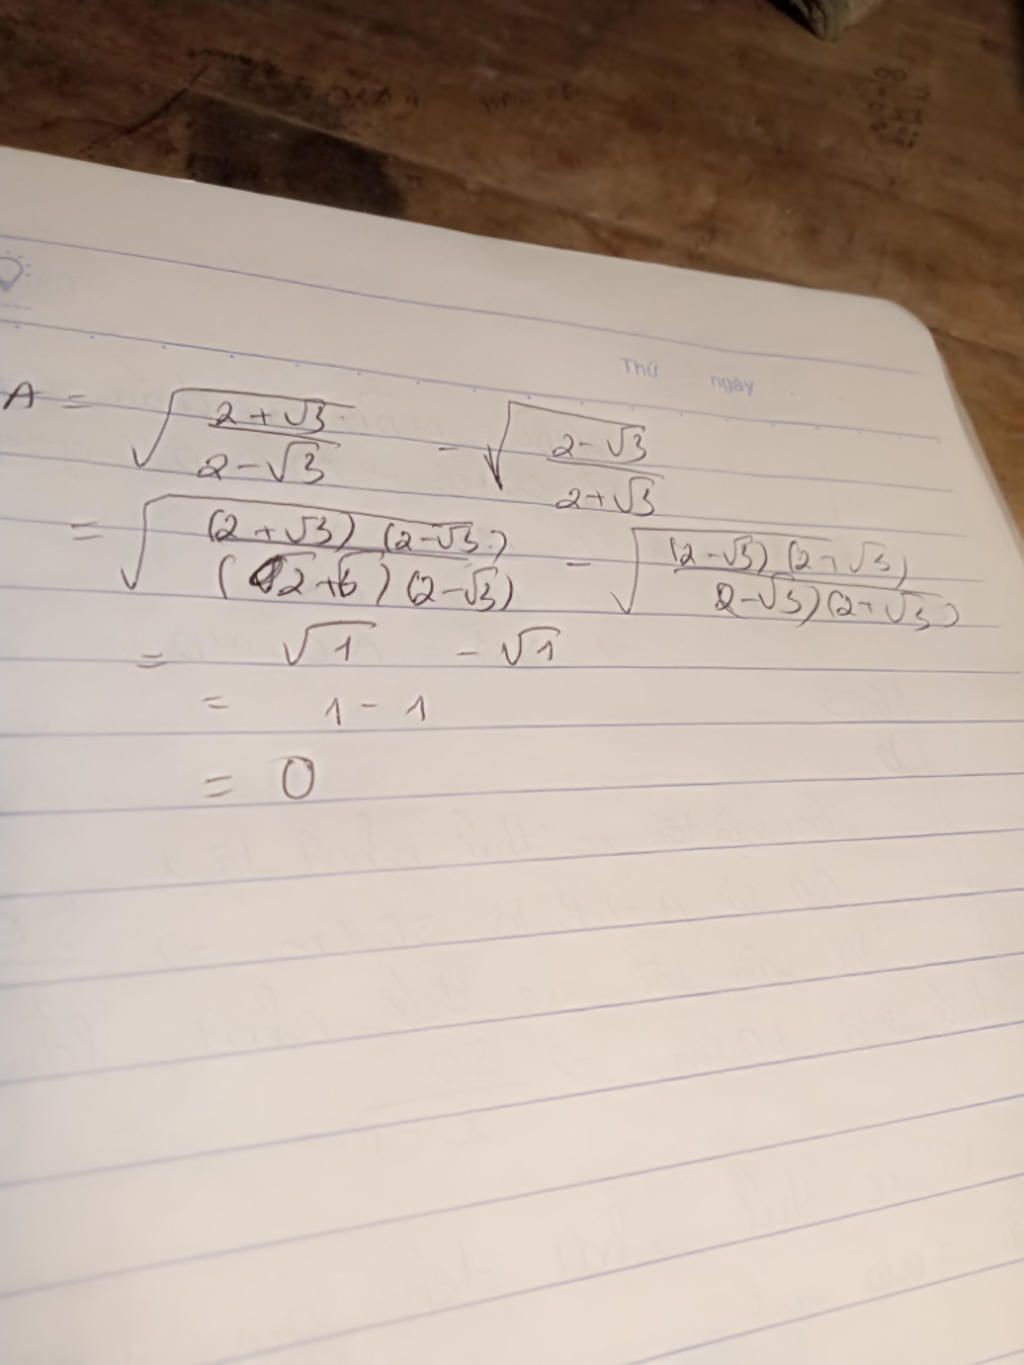 Thứ ngày
A = √((2+√3)/(2-√3)) - √((2-√3)/(2+√3))
= √((2+√3)(2-√3)/((√2+√6)(2-√3))) - √((2-√3)(2+√3)/(2-√3)(2+√3))
= √1 - √1
= 1 - 1
= 0